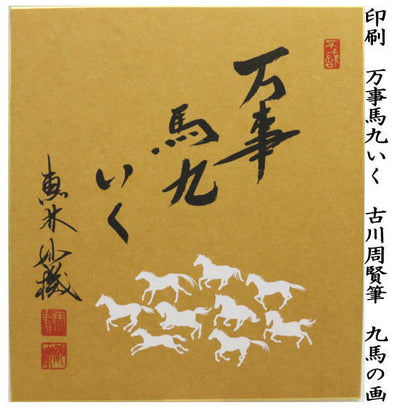 印刷　万事馬九いく　古川周賢筆　九馬の画
万事
馬九
いく